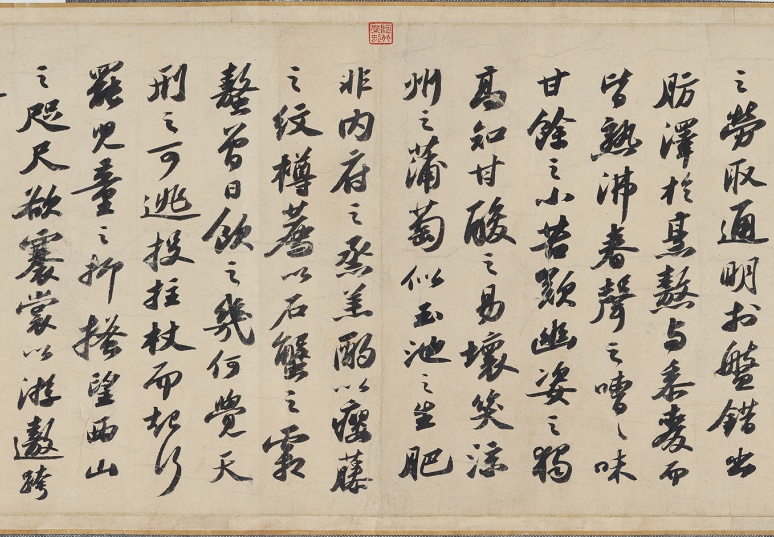 之勞取通明於盤錯出
肪澤於烹熬與黍麥而
皆熟沸舂聲之嘈〻味
甘餘之小苦歎幽姿之獨
高知甘酸之易壞笑涼
州之蒲萄似玉池之生肥
非內府之烝羔酌以癭藤
之紋樽薦以石蟹之霜
螯曾日飲之幾何覺天
刑之可逃投拄杖而起行
罷兒童之抑搔望西山
之咫尺欲褰裳以游遨跨